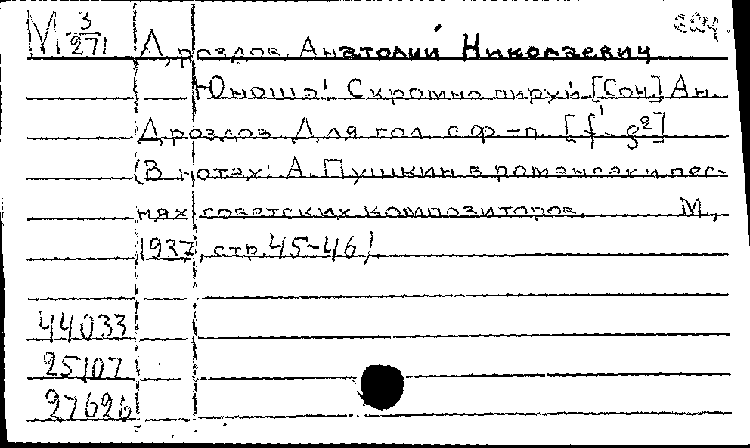 М 3/271 Дроздов, Анатолий Николаевич
Юноша! Скромно пируй [Сон.] Ан.
Дроздов. Для гол. с ф-п. [f¹-g²]
(В нотах: А. Пушкин в романсах и пес-
нях советских композиторов. М.,
1937, стр. 45-46)
44033
25107
27626